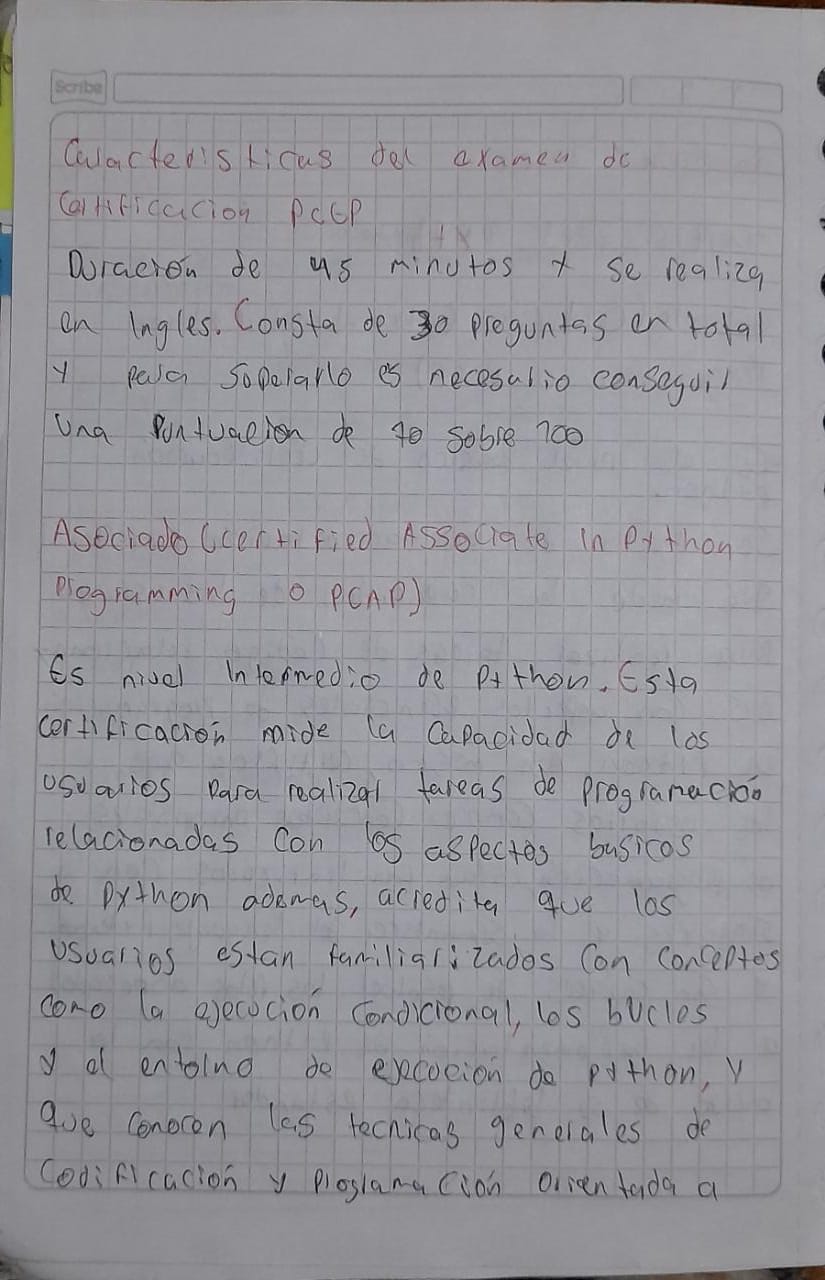 Scribe
Caracteristicas del examen de
Certificacion PCEP
Duración de 45 minutos y se realiza
en Ingles. Consta de 30 preguntas en total
y para Superarlo es necesario conseguir
Una Puntuacion de 70 sobre 100
Asociado (certified Associate In Python
Programming o PCAP)
Es nivel Intermedio de Python. Esta
certificación mide la Capacidad de los
usuarios para realizar tareas de programación
relacionadas Con los aspectos basicos
de Python ademas, acredita que los
usuarios estan familiarizados Con conceptos
como la ejecución Condicional, los bucles
y el entorno de ejecución de python, y
que conocen las tecnicas generales de
Codificación y Programación Orientada a